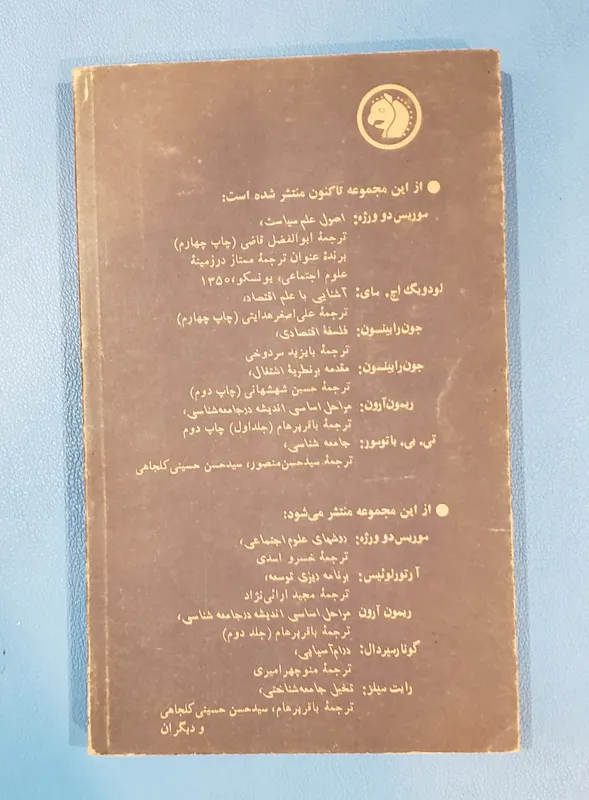 ● از این مجموعه تاکنون منتشر شده است:
موریس دو ورژه: اصول علم سیاست،
ترجمهٔ ابوالفضل قاضی (چاپ چهارم)
برندهٔ عنوان ترجمهٔ ممتاز درزمینهٔ
علوم اجتماعی، یونسکو، ۱۳۵۰
لودویگ اچ. مای: آشنایی با علم اقتصاد،
ترجمهٔ علی‌اصغر هدایتی (چاپ چهارم)
جون رابینسون: فلسفهٔ اقتصادی،
ترجمهٔ بایزید سردوخی
جون رابینسون: مقدمه برنظریهٔ اشتغال،
ترجمهٔ حسین شهشهانی (چاپ دوم)
ریمون آرون: مراحل اساسی اندیشه درجامعه شناسی،
ترجمهٔ باقر پرهام (جلد اول) چاپ دوم
تی. بی. باتومور: جامعه شناسی،
ترجمهٔ سیدحسن منصور، سیدحسن حسینی کلجاهی
● از این مجموعه منتشر می‌شود:
موریس دو ورژه: روشهای علوم اجتماعی،
ترجمهٔ خسرو اسدی
آرتور لوئیس: برنامه ریزی توسعه،
ترجمهٔ مجید ارائی‌نژاد
ریمون آرون مراحل اساسی اندیشه درجامعه شناسی،
ترجمهٔ باقر پرهام (جلد دوم)
گونار میردال: درام آسیایی،
ترجمهٔ منوچهر امیری
رایت میلز: تخیل جامعه‌شناختی،
ترجمهٔ باقر پرهام، سیدحسن حسینی کلجاهی
و دیگران